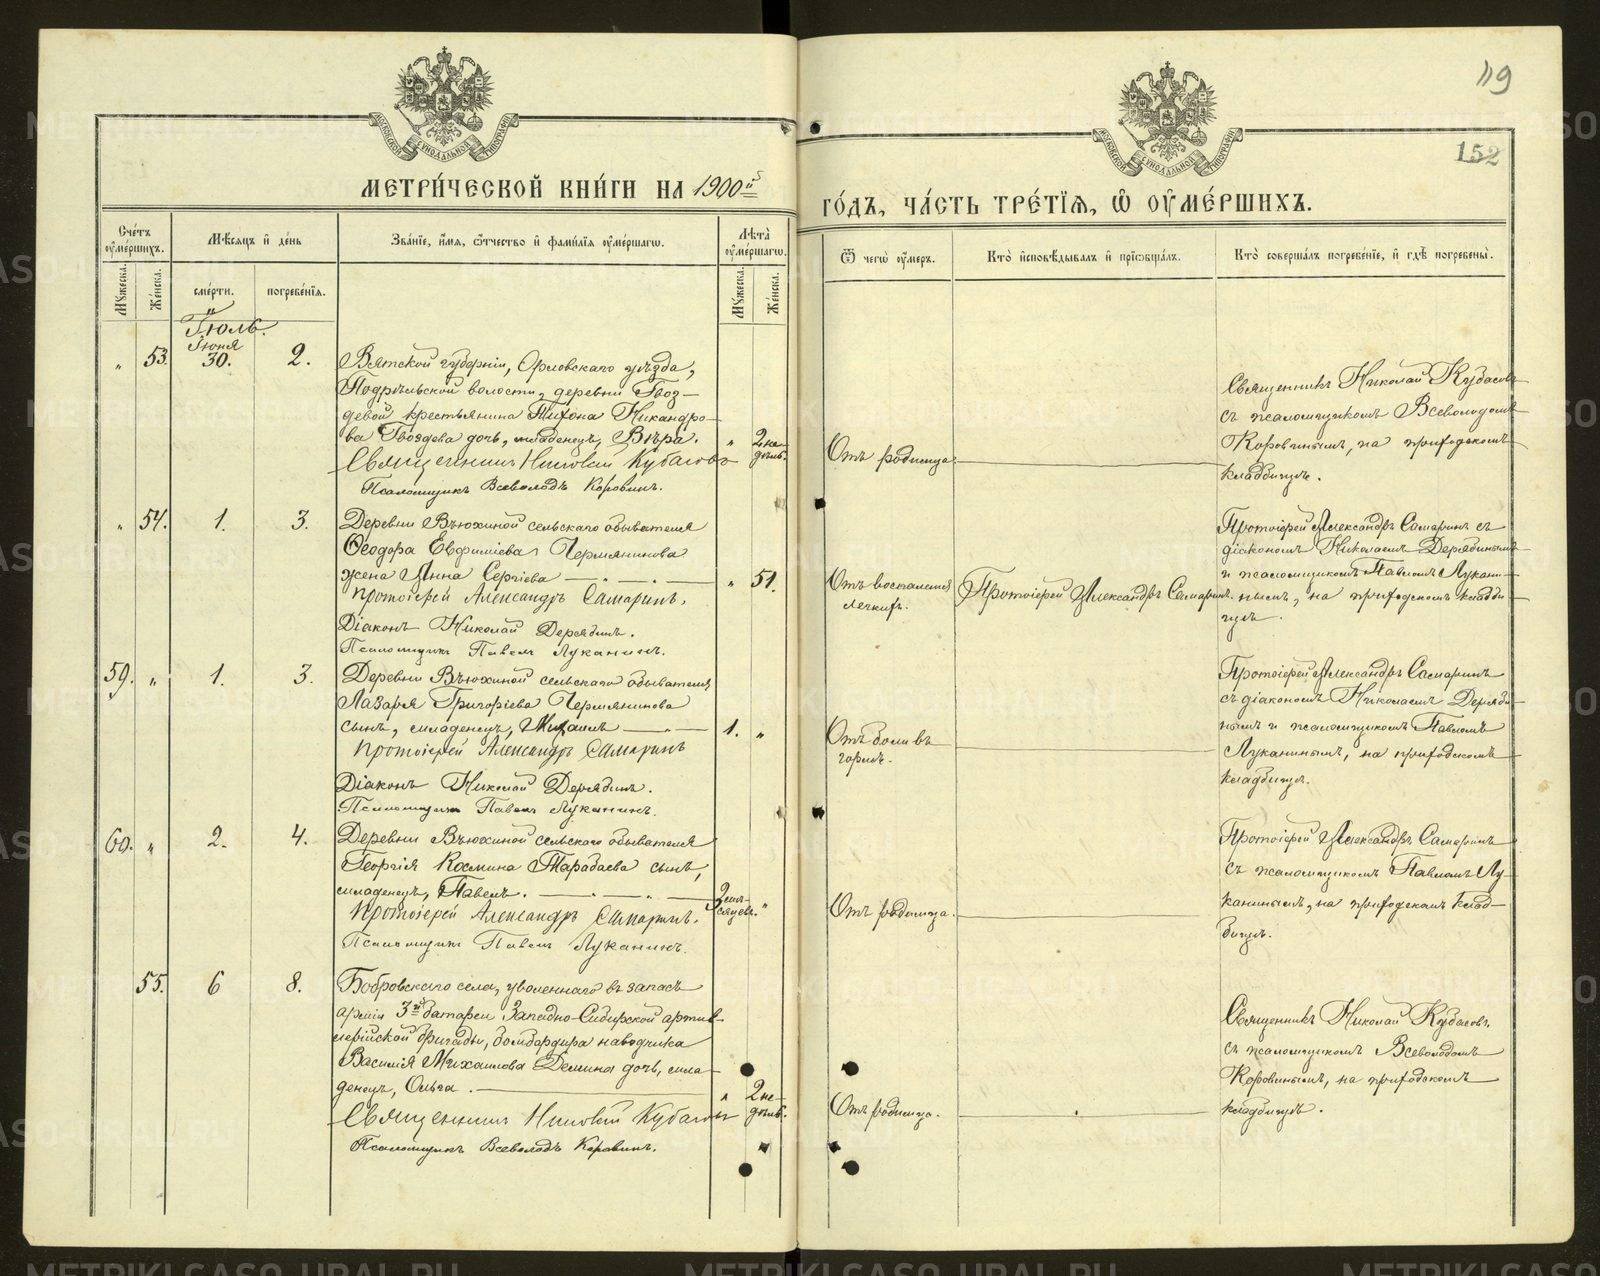 119
152
МЕТРИ́ЧЕСКОЙ КНИ́ГИ НА 1900й
ГО́ДЪ, ЧА́СТЬ ТРЕ́ТІЯ, Ѡ ОУМЕ́РШИХЪ.
Сче́тъ оуме́ршихъ.
Мѣ́сяцъ и де́нь
Зва́нїе, и́мя, ѻ́тчество и фами́лїя оуме́ршагѡ.
Лѣта̀ оуме́ршагѡ.
Ѿ чегѡ̀ оу́меръ.
Кто̀ исповѣ́дывалъ и прїѡбща́лъ.
Кто̀ соверша́лъ погребе́нїе, и гдѣ̀ погребены̀.
Му́жеска.
Же́нска.
сме́рти.
погребе́нїя.
Му́жеска.
Же́нска.
Іюль.
„ 53. Іюня 30. 2.
Вятской губерніи, Орловскаго уѣзда,
Подрѣльской волости, деревни Гвоз-
девой крестьянина Тихона Никандро-
ва Гвоздева дочь, младенецъ, Вѣра.
„ 2 не-
дѣль.
Священникъ Николай Кубасовъ
Псаломщикъ Всеволодъ Коровинъ.
Отъ родимца.
Священникъ Николай Кубасовъ
съ псаломщикомъ Всеволодомъ
Коровинымъ, на приходскомъ
кладбищѣ.
„ 54. 1. 3.
Деревни Вьюхиной сельскаго обывателя
Ѳеодора Евфиміева Чермянинова
жена Анна Сергіева
„ 51.
Протоіерей Александръ Самаринъ.
Діаконъ Николай Дерябинъ.
Псаломщикъ Павелъ Луканинъ.
Отъ воспаленія
легкихъ.
Протоіерей Александръ Самаринъ.
Протоіерей Александръ Самаринъ съ
діакономъ Николаемъ Дерябинымъ
и псаломщикомъ Павломъ Лукани-
нымъ, на приходскомъ кладби-
щѣ.
59. „ 1. 3.
Деревни Вьюхиной сельскаго обывателя
Лазаря Григоріева Чермянинова
сынъ, младенецъ, Михаилъ
1. „
Протоіерей Александръ Самаринъ
Діаконъ Николай Дерябинъ.
Псаломщикъ Павелъ Луканинъ.
Отъ боли въ
горлѣ.
Протоіерей Александръ Самаринъ
съ діакономъ Николаемъ Деряби-
нымъ и псаломщикомъ Павломъ
Луканинымъ, на приходскомъ
кладбищѣ.
60. „ 2. 4.
Деревни Вьюхиной сельскаго обывателя
Георгія Космина Тарабаева сынъ,
младенецъ, Павелъ.
2 мѣ-
сяцевъ. „
Протоіерей Александръ Самаринъ.
Псаломщикъ Павелъ Луканинъ.
Отъ родимца.
Протоіерей Александръ Самаринъ
съ псаломщикомъ Павломъ Лу-
канинымъ, на приходскомъ клад-
бищѣ.
55. 6 8.
Бобровскаго села, уволеннаго въ запасъ
арміи 3й батареи Западно-Сибирской артил-
лерійской бригады, бомбардира наводчика
Василія Михаилова Демина дочь, мла-
денецъ, Ольга.
„ 2 не-
дѣль.
Священникъ Николай Кубасовъ
Псаломщикъ Всеволодъ Коровинъ.
Отъ родимца.
Священникъ Николай Кубасовъ
съ псаломщикомъ Всеволодомъ
Коровинымъ, на приходскомъ
кладбищѣ.